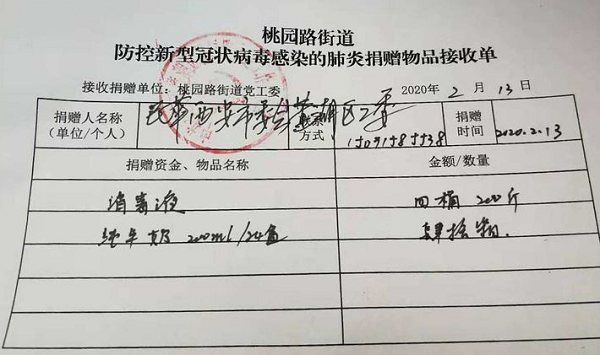 桃园路街道
防控新型冠状病毒感染的肺炎捐赠物品接收单
接收捐赠单位：桃园路街道党工委 2020年2月13日
捐赠人名称（单位/个人） 民革西安市委会莲湖区工委 联系方式 捐赠时间 2020.2.13
捐赠资金、物品名称 金额/数量
消毒液 四桶 200斤
纯牛奶 200ml/24盒 肆拾箱.